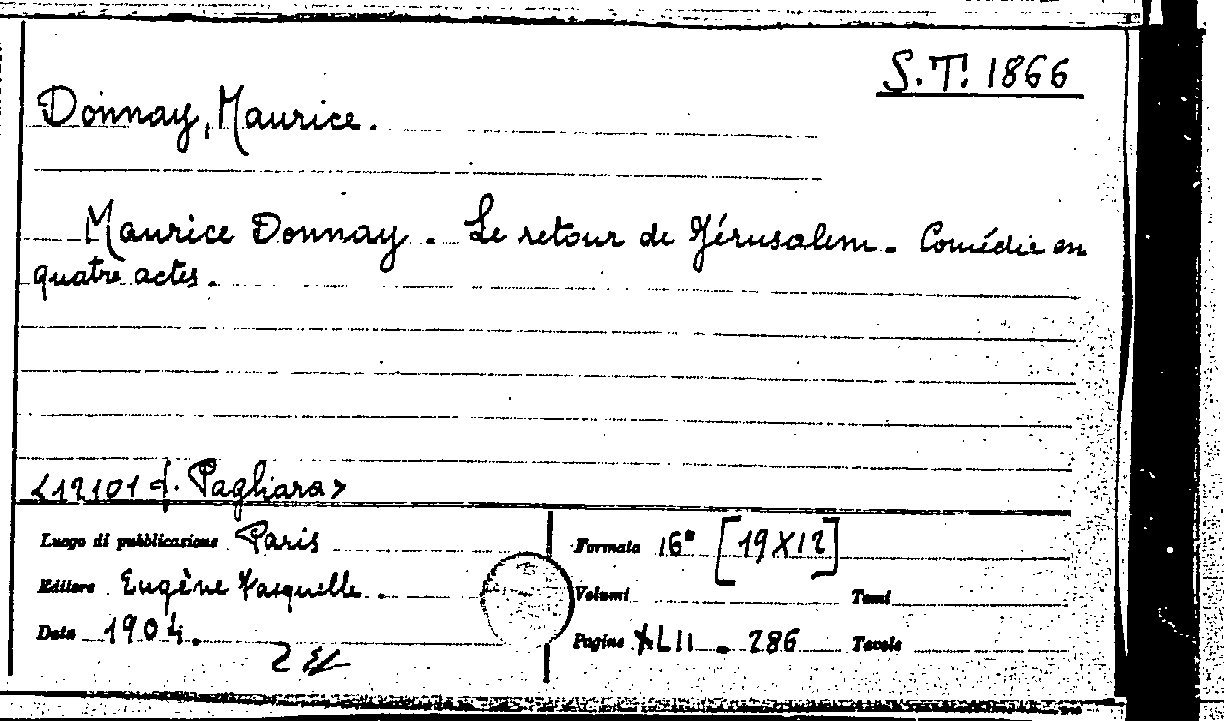 S.T. 1866
Donnay, Maurice.
Maurice Donnay. Le retour de Jérusalem. Comédie en
quatre actes.
<12101 f. Pagliara>
Luogo di pubblicazione Paris
Editore Eugène Fasquelle.
Data 1904.
Formato 16° [19X12]
Volumi Tomi
Pagine XLII - 286 Tavole